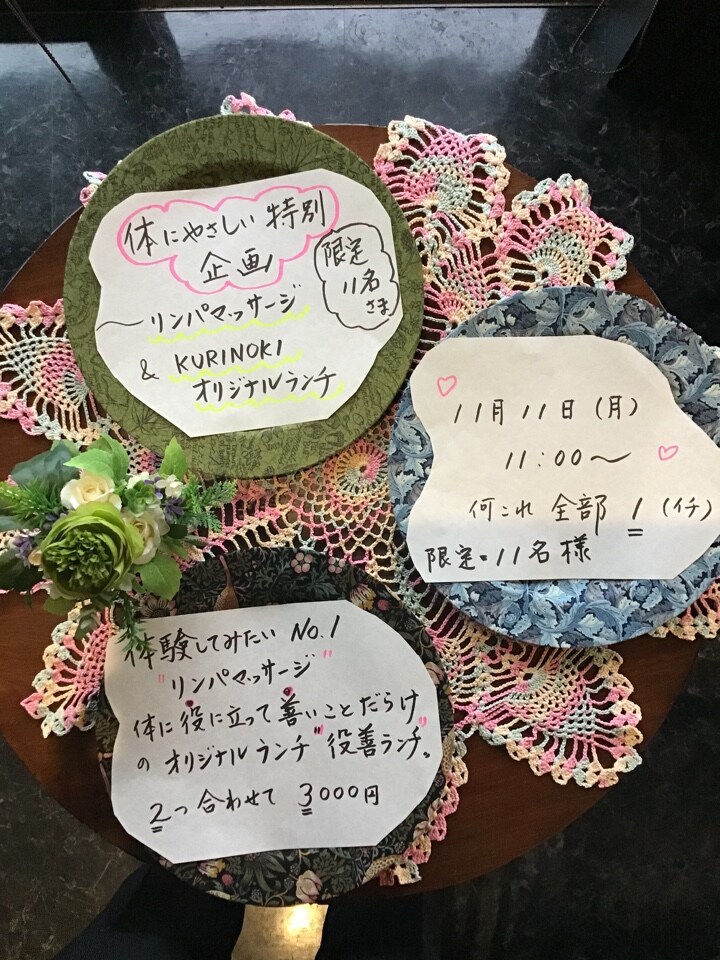 体にやさしい 特別
企画
限定
11名
さま
〜リンパマッサージ
& KURINOKI
オリジナルランチ
11月11日(月)
11:00〜
何これ 全部 1(イチ)
限定・11名様
体験してみたい No.1
"リンパマッサージ"
体に役に立って善いことだらけ
の オリジナルランチ"役善ランチ"。
2つ合わせて 3000円